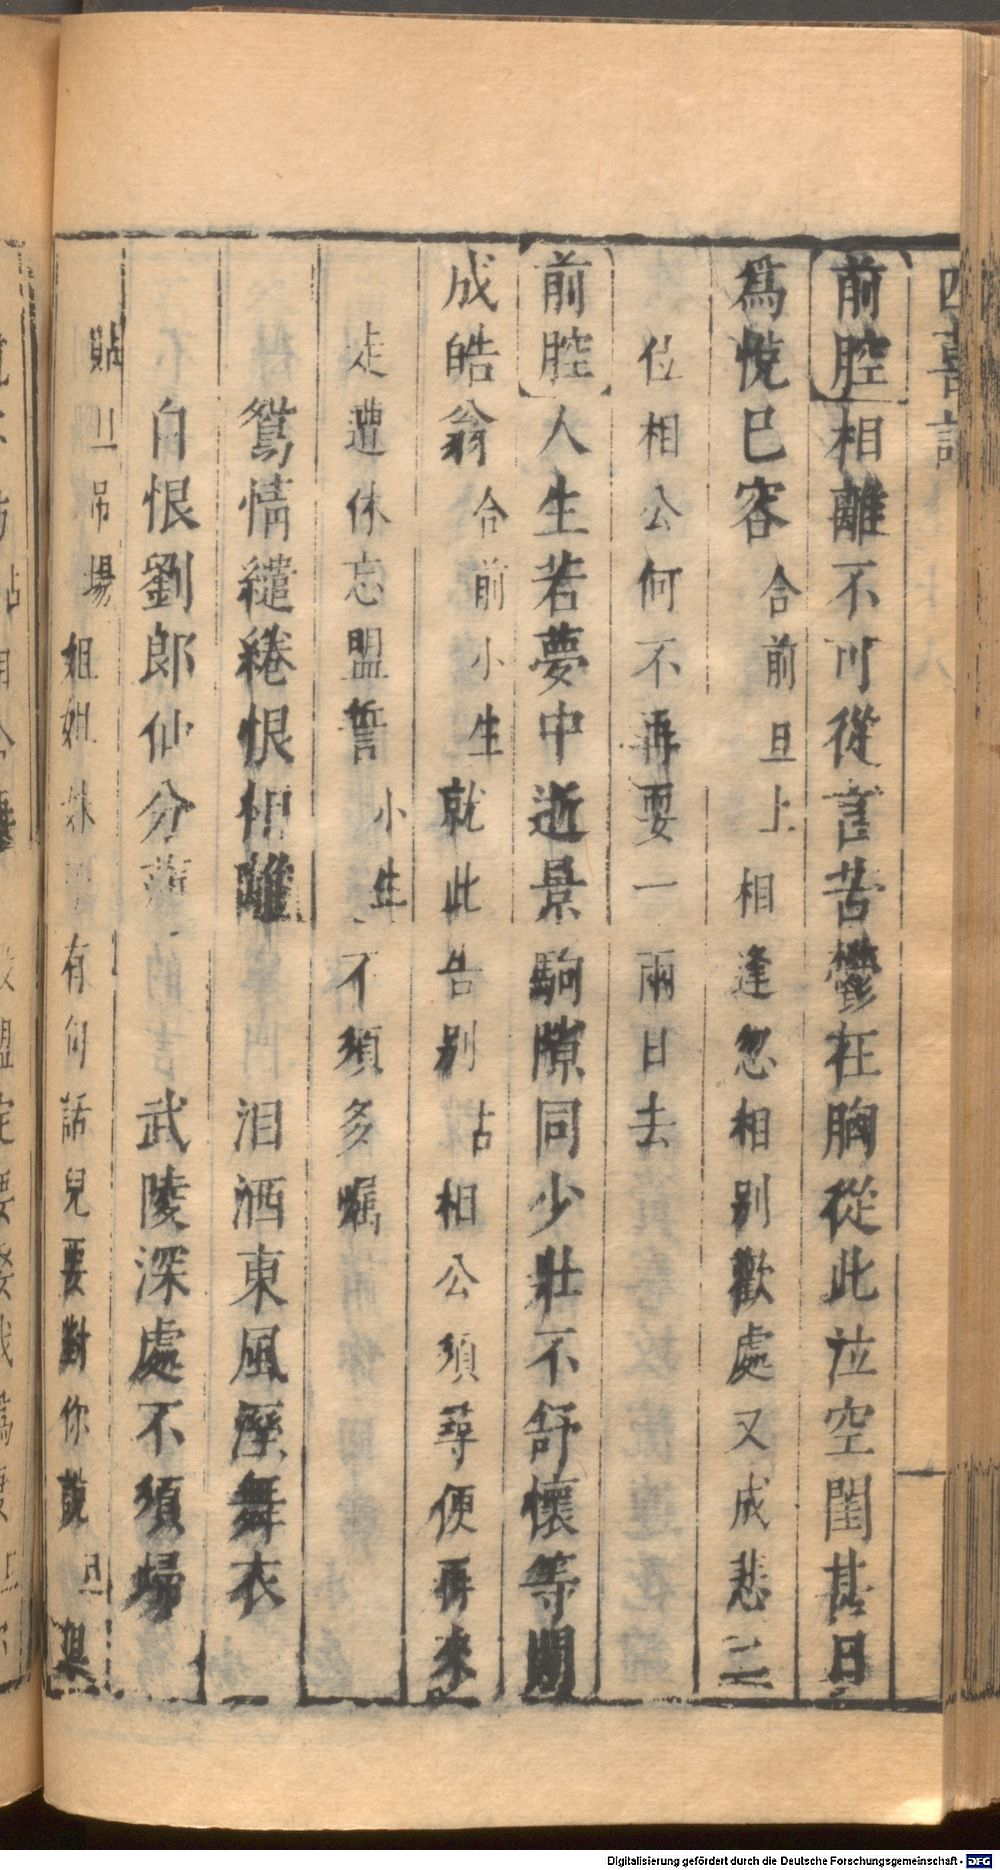 四喜記
前腔相離不可從言苦鬱在胸從此泣空閨甚日
爲悅己容合前旦上相逢忽相別歡處又成悲二
位相公何不再耍一兩日去
前腔人生若夢中逝景駒隙同少壯不舒懷等閒
成皓翁合前小生就此告別占相公須尋便再來
走遭休忘盟誓小生不須多囑
鴛情繾綣恨相離 泪洒東風溼舞衣
自恨劉郎仙分薄 武陵深處不須歸
貼旦吊場姐姐妹 有句話兒要對你說旦
Digitalisierung gefördert durch die Deutsche Forschungsgemeinschaft - DFG